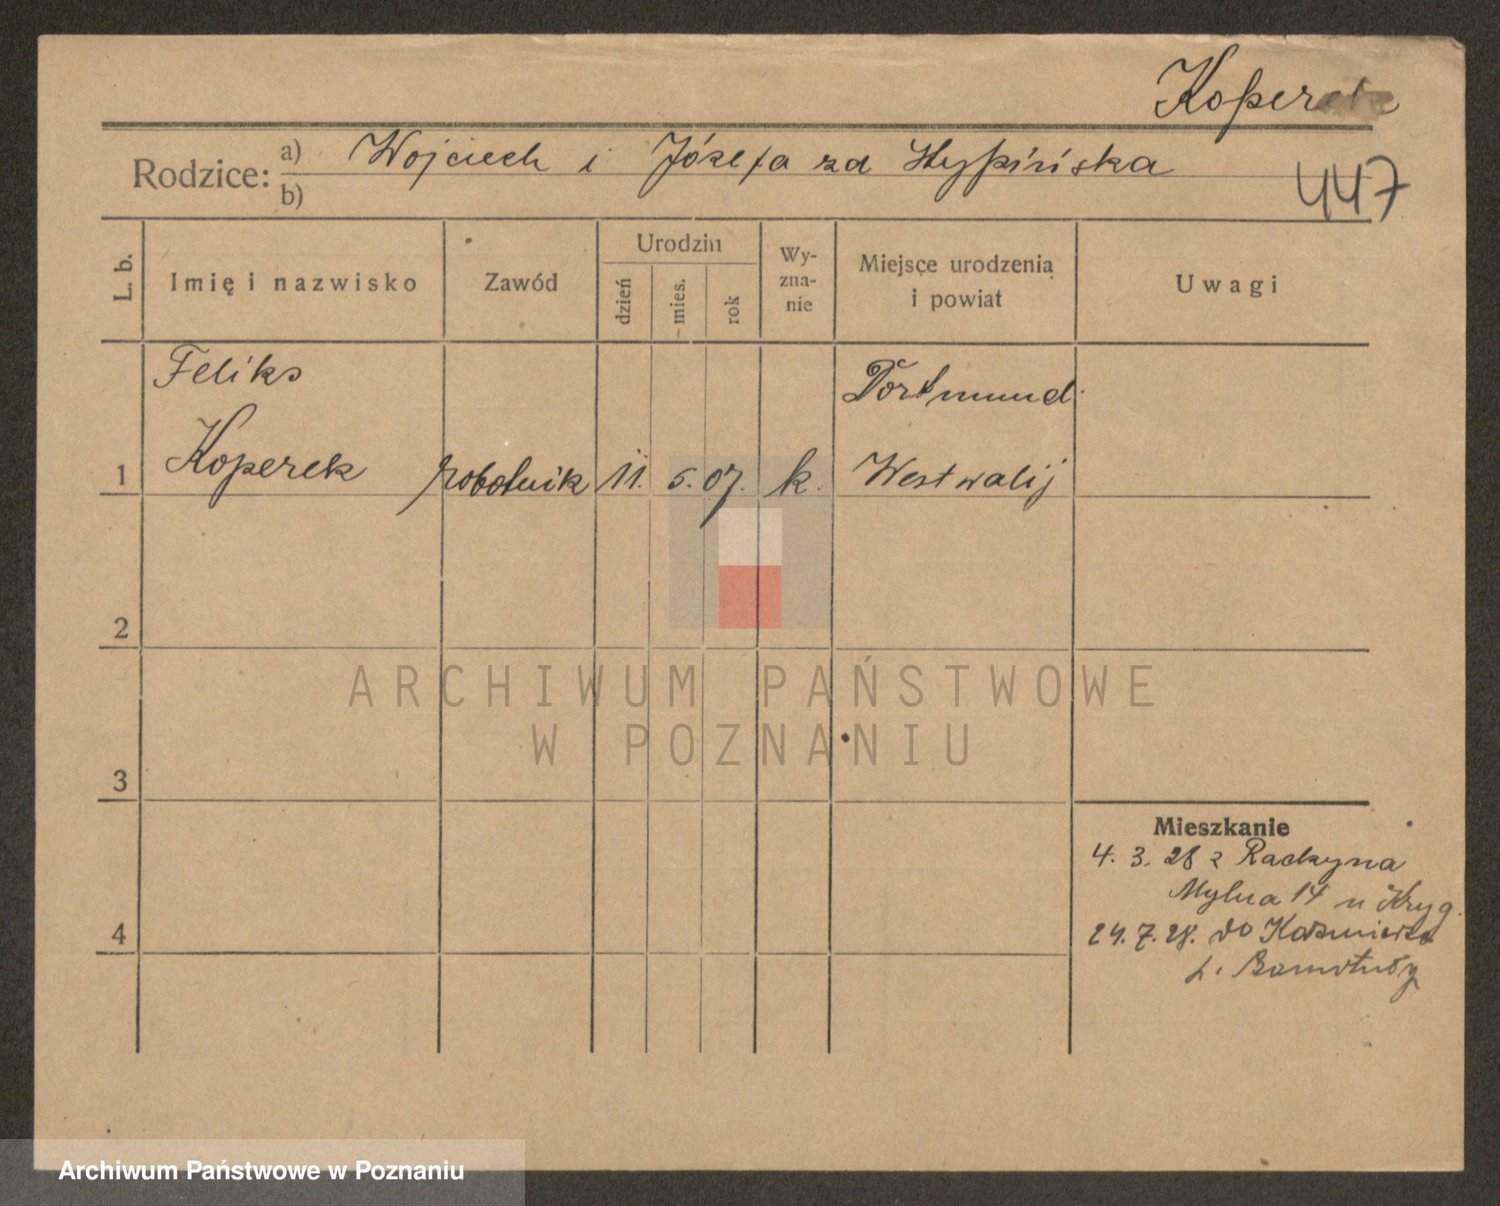 Koperek
Rodzice: a) Wojciech i Józefa zd
b)
447
L. b.
Imię i nazwisko
Zawód
Urodzin
dzień
mies.
rok
Wy-
zna-
nie
Miejsce urodzenia
i powiat
Uwagi
Feliks
Koperek
1
robotnik
11.
5.
07.
k.
Dortmund
Westwalij
2
3
4
Mieszkanie
4. 3. 28 z Raczyna
Mylna 14 u Kryg.
24. 7. 28. do Kaźmierza
p.
ARCHIWUM PAŃSTWOWE
W POZNANIU
Archiwum Państwowe w Poznaniu